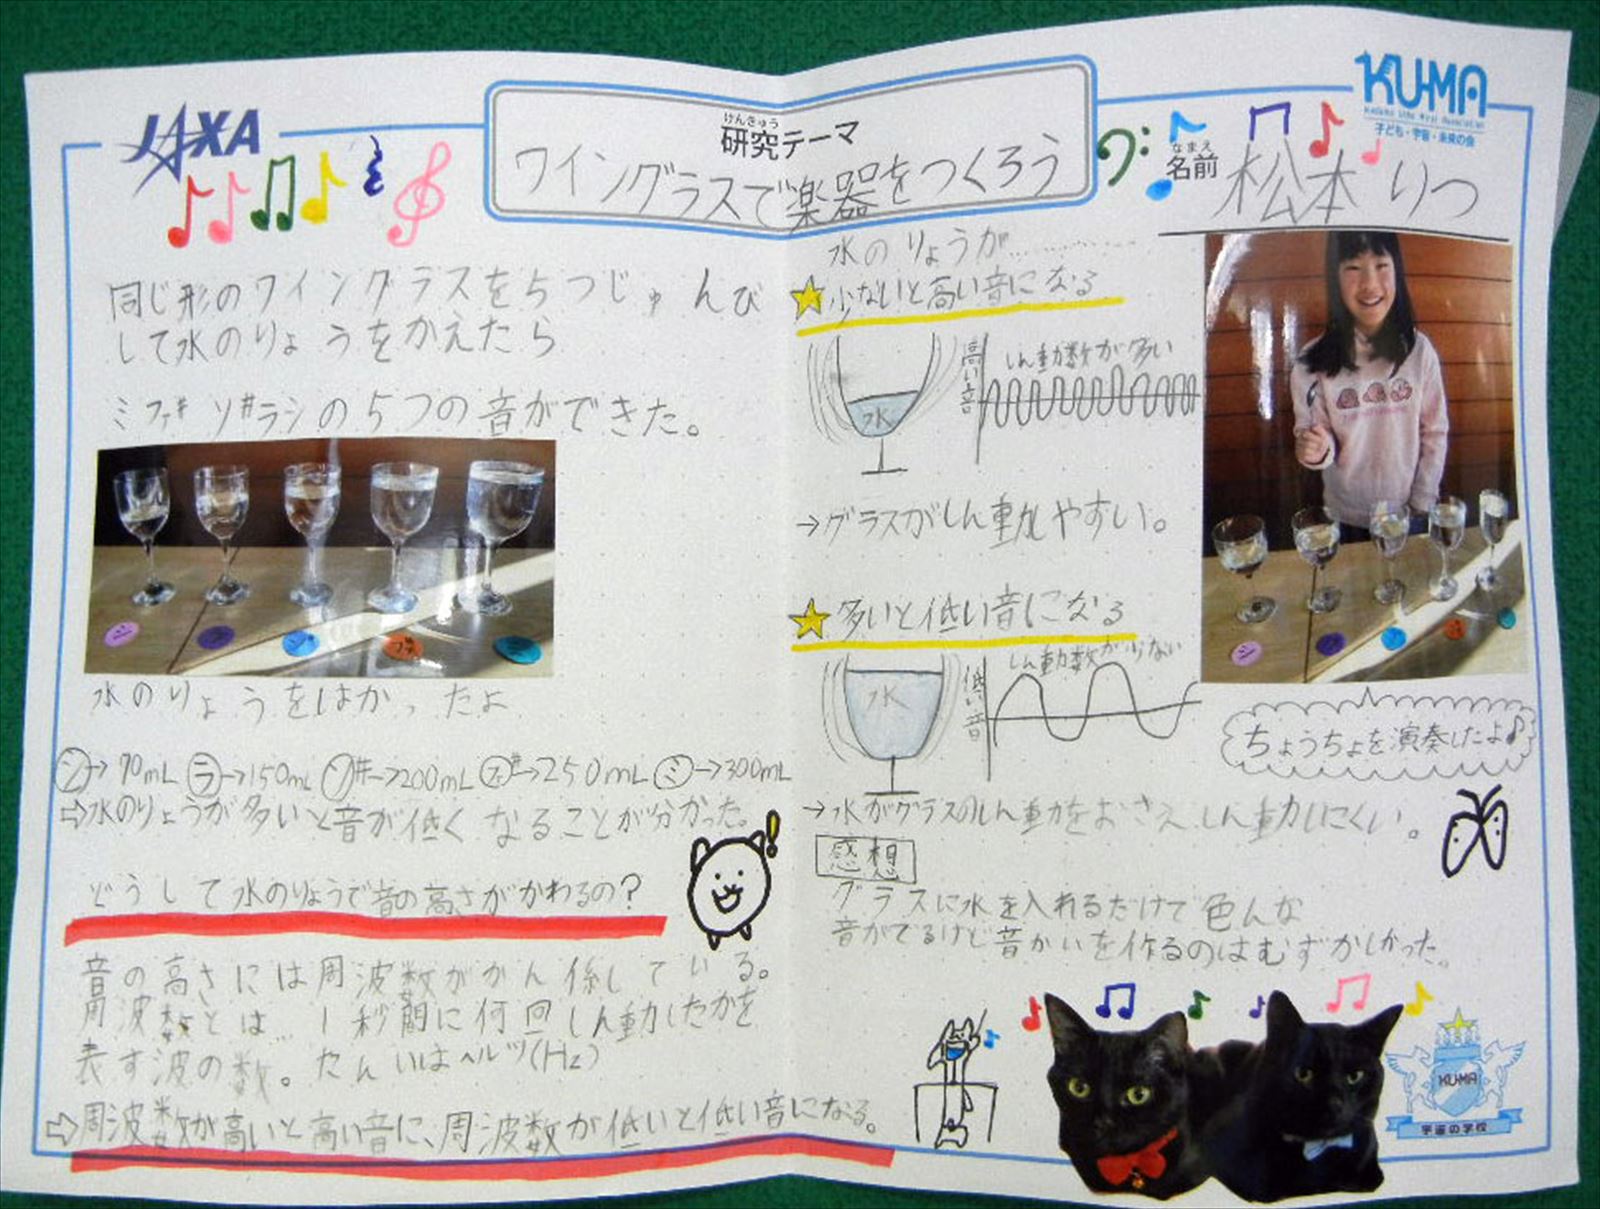 JAXA
けんきゅう
研究テーマ
ワイングラスで楽器をつくろう
なまえ
名前 松本 りつ
KU-MA
子ども・宇宙・未来の会
同じ形のワイングラスを5つじゅんび
して水のりょうをかえたら
ミファ#ソ#ラシの5つの音ができた。
シ
ラ
ソ#
ファ#
ミ
水のりょうをはかったよ
シ→70mL ラ→150mL ソ#→200mL ファ#→250mL ミ→300mL
⇨水のりょうが多いと音が低くなることが分かった。
どうして水のりょうで音の高さがかわるの?
音の高さには周波数がかん係している。
周波数とは…1秒間に何回しん動したかを
表す波の数。たんいはヘルツ(Hz)
⇨周波数が高いと高い音に、周波数が低いと低い音になる。
水のりょうが…………
☆少ないと高い音になる
水
高い音
しん動数が多い
→グラスがしん動しやすい。
☆多いと低い音になる
水
低い音
しん動数が少ない
→水がグラスのしん動をおさえ、しん動しにくい。
シ
ラ
ソ#
ファ#
ちょうちょを演奏したよ♪
感想
グラスに水を入れるだけで色んな
音がでるけど音かいを作るのはむずかしかった。
KU-MA
宇宙の学校